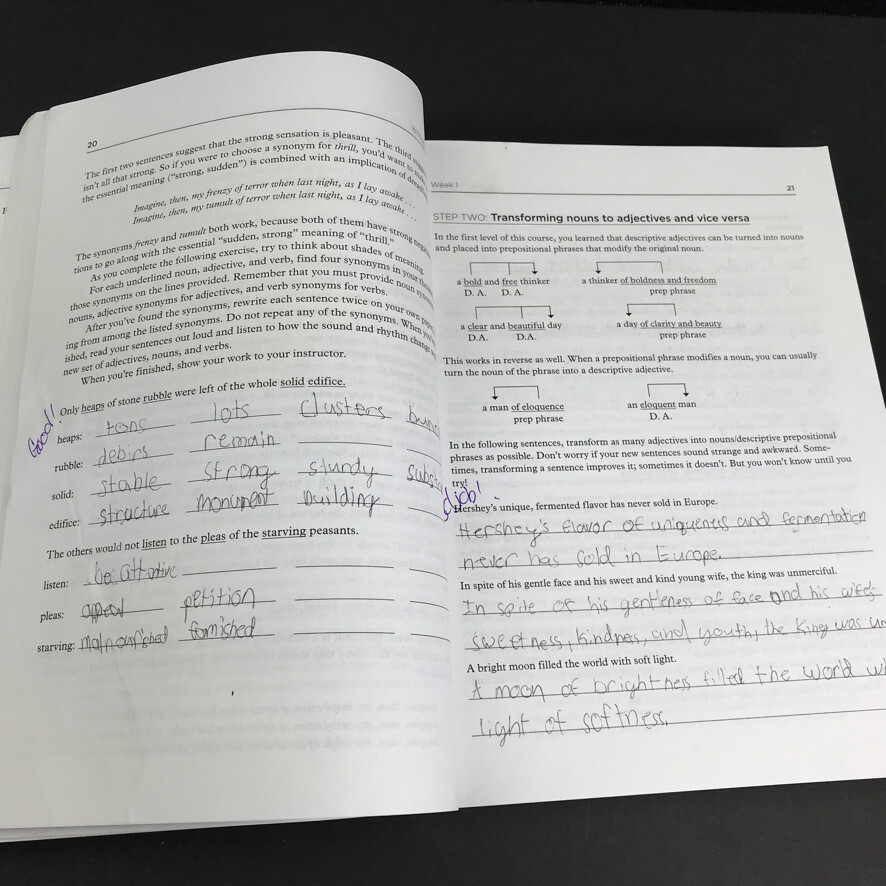 20
The first two sentences suggest that the strong sensation is pleasant. The third
isn't all that strong. So if you were to choose a synonym for thrill, you'd want to
the essential meaning ("strong, sudden") is combined with an implication of
Imagine, then, my frenzy of terror when last night, as I lay awake . . .
Imagine, then, my tumult of terror when last night, as I lay awake . . .
The synonyms frenzy and tumult both work, because both of them have strong
tions to go along with the essential "sudden, strong" meaning of "thrill."
As you complete the following exercise, try to think about shades of meaning.
For each underlined noun, adjective, and verb, find four synonyms in your
those synonyms on the lines provided. Remember that you must provide noun
nouns, adjective synonyms for adjectives, and verb synonyms for verbs.
After you've found the synonyms, rewrite each sentence twice on your own
ing from among the listed synonyms. Do not repeat any of the synonyms. When
ished, read your sentences out loud and listen to how the sound and rhythm
new set of adjectives, nouns, and verbs.
When you're finished, show your work to your instructor.
Good!
Only heaps of stone rubble were left of the whole solid edifice.
heaps: tons lots clusters
rubble: debirs remain
solid: stable strong sturdy
edifice: structure monument building
The others would not listen to the pleas of the starving peasants.
listen: be
pleas: appeal petition
starving: malnourished
Week 1
21
STEP TWO: Transforming nouns to adjectives and vice versa
In the first level of this course, you learned that descriptive adjectives can be turned into nouns
and placed into prepositional phrases that modify the original noun.
a bold and free thinker a thinker of boldness and freedom
D. A. D. A. prep phrase
a clear and beautiful day a day of clarity and beauty
D.A. D.A. prep phrase
This works in reverse as well. When a prepositional phrase modifies a noun, you can usually
turn the noun of the phrase into a descriptive adjective.
a man of eloquence an eloquent man
prep phrase D. A.
In the following sentences, transform as many adjectives into nouns/descriptive prepositional
phrases as possible. Don't worry if your new sentences sound strange and awkward. Some-
times, transforming a sentence improves it; sometimes it doesn't. But you won't know until you
try!
Hershey's unique, fermented flavor has never sold in Europe.
Hershey's flavor of uniqueness and fermentation
never has sold in Europe.
In spite of his gentle face and his sweet and kind young wife, the king was unmerciful.
In spite of his gentleness of face and his wife's
sweetness, kindness, and youth, the king was
A bright moon filled the world with soft light.
A moon of brightness filled the world
light of softness.